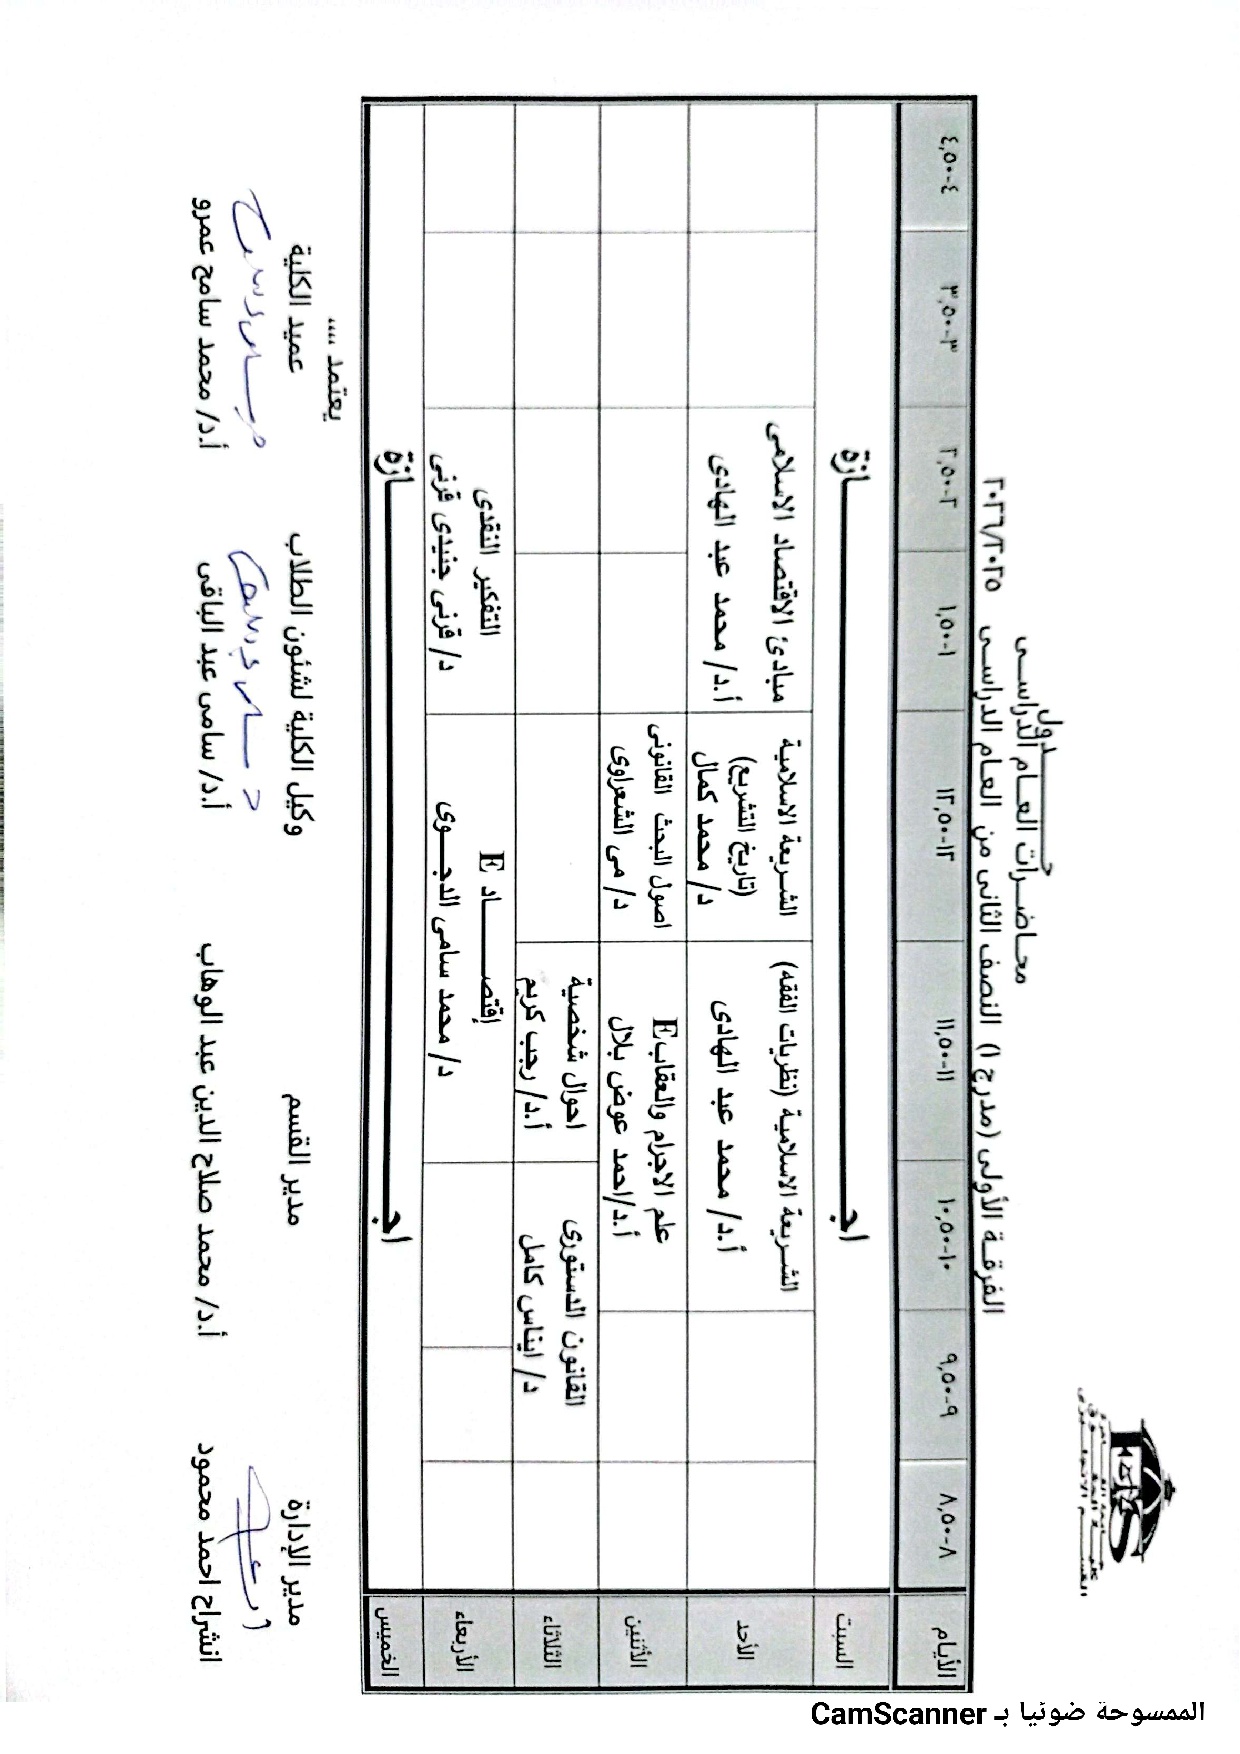 جـــــدول
محاضـرات العـام الدراسـى
الفرقـة الأولى (مدرج ١) النصف الثانى من العام الدراسـى ٢٠٢٦/٢٠٢٥
الأيام
٨-٨,٥٠
٩-٩,٥٠
١٠-١٠,٥٠
١١-١١,٥٠
١٢-١٢,٥٠
١-١,٥٠
٢-٢,٥٠
٣-٣,٥٠
٤-٤,٥٠
السبت
اجـــــــازة
الأحد
الشـريعة الاسلامية (نظريات الفقه)
أ.د/ محمد عبد الهادى
الشـريعة الاسلامية
(تاريخ التشريع)
د/ محمد كمال
مبادئ الاقتصاد الاسلامى
أ.د/ محمد عبد الهادى
الأثنين
علم الاجرام والعقاب E
أ.د/احمد عوض بلال
اصول البحث القانونى
د/ مى الشعراوى
الثلاثاء
القانون الدستورى
د/ ايناس كامل
احوال شخصية
أ.د/ رجب كريم
الأربعاء
إقتصـــــاد E
د/ محمد سامى الدجــوى
التفكير النقدى
د/ قرنى جنيدى قرنى
الخميس
اجـــــــازة
يعتمد ....
مدير الإدارة
مدير القسم
وكيل الكلية لشئون الطلاب
عميد الكلية
انشراح احمد محمود
أ.د/ محمد صلاح الدين عبد الوهاب
أ.د/ سامى عبد الباقى
أ.د/ محمد سامح عمرو
الممسوحة ضوئيا بـ CamScanner